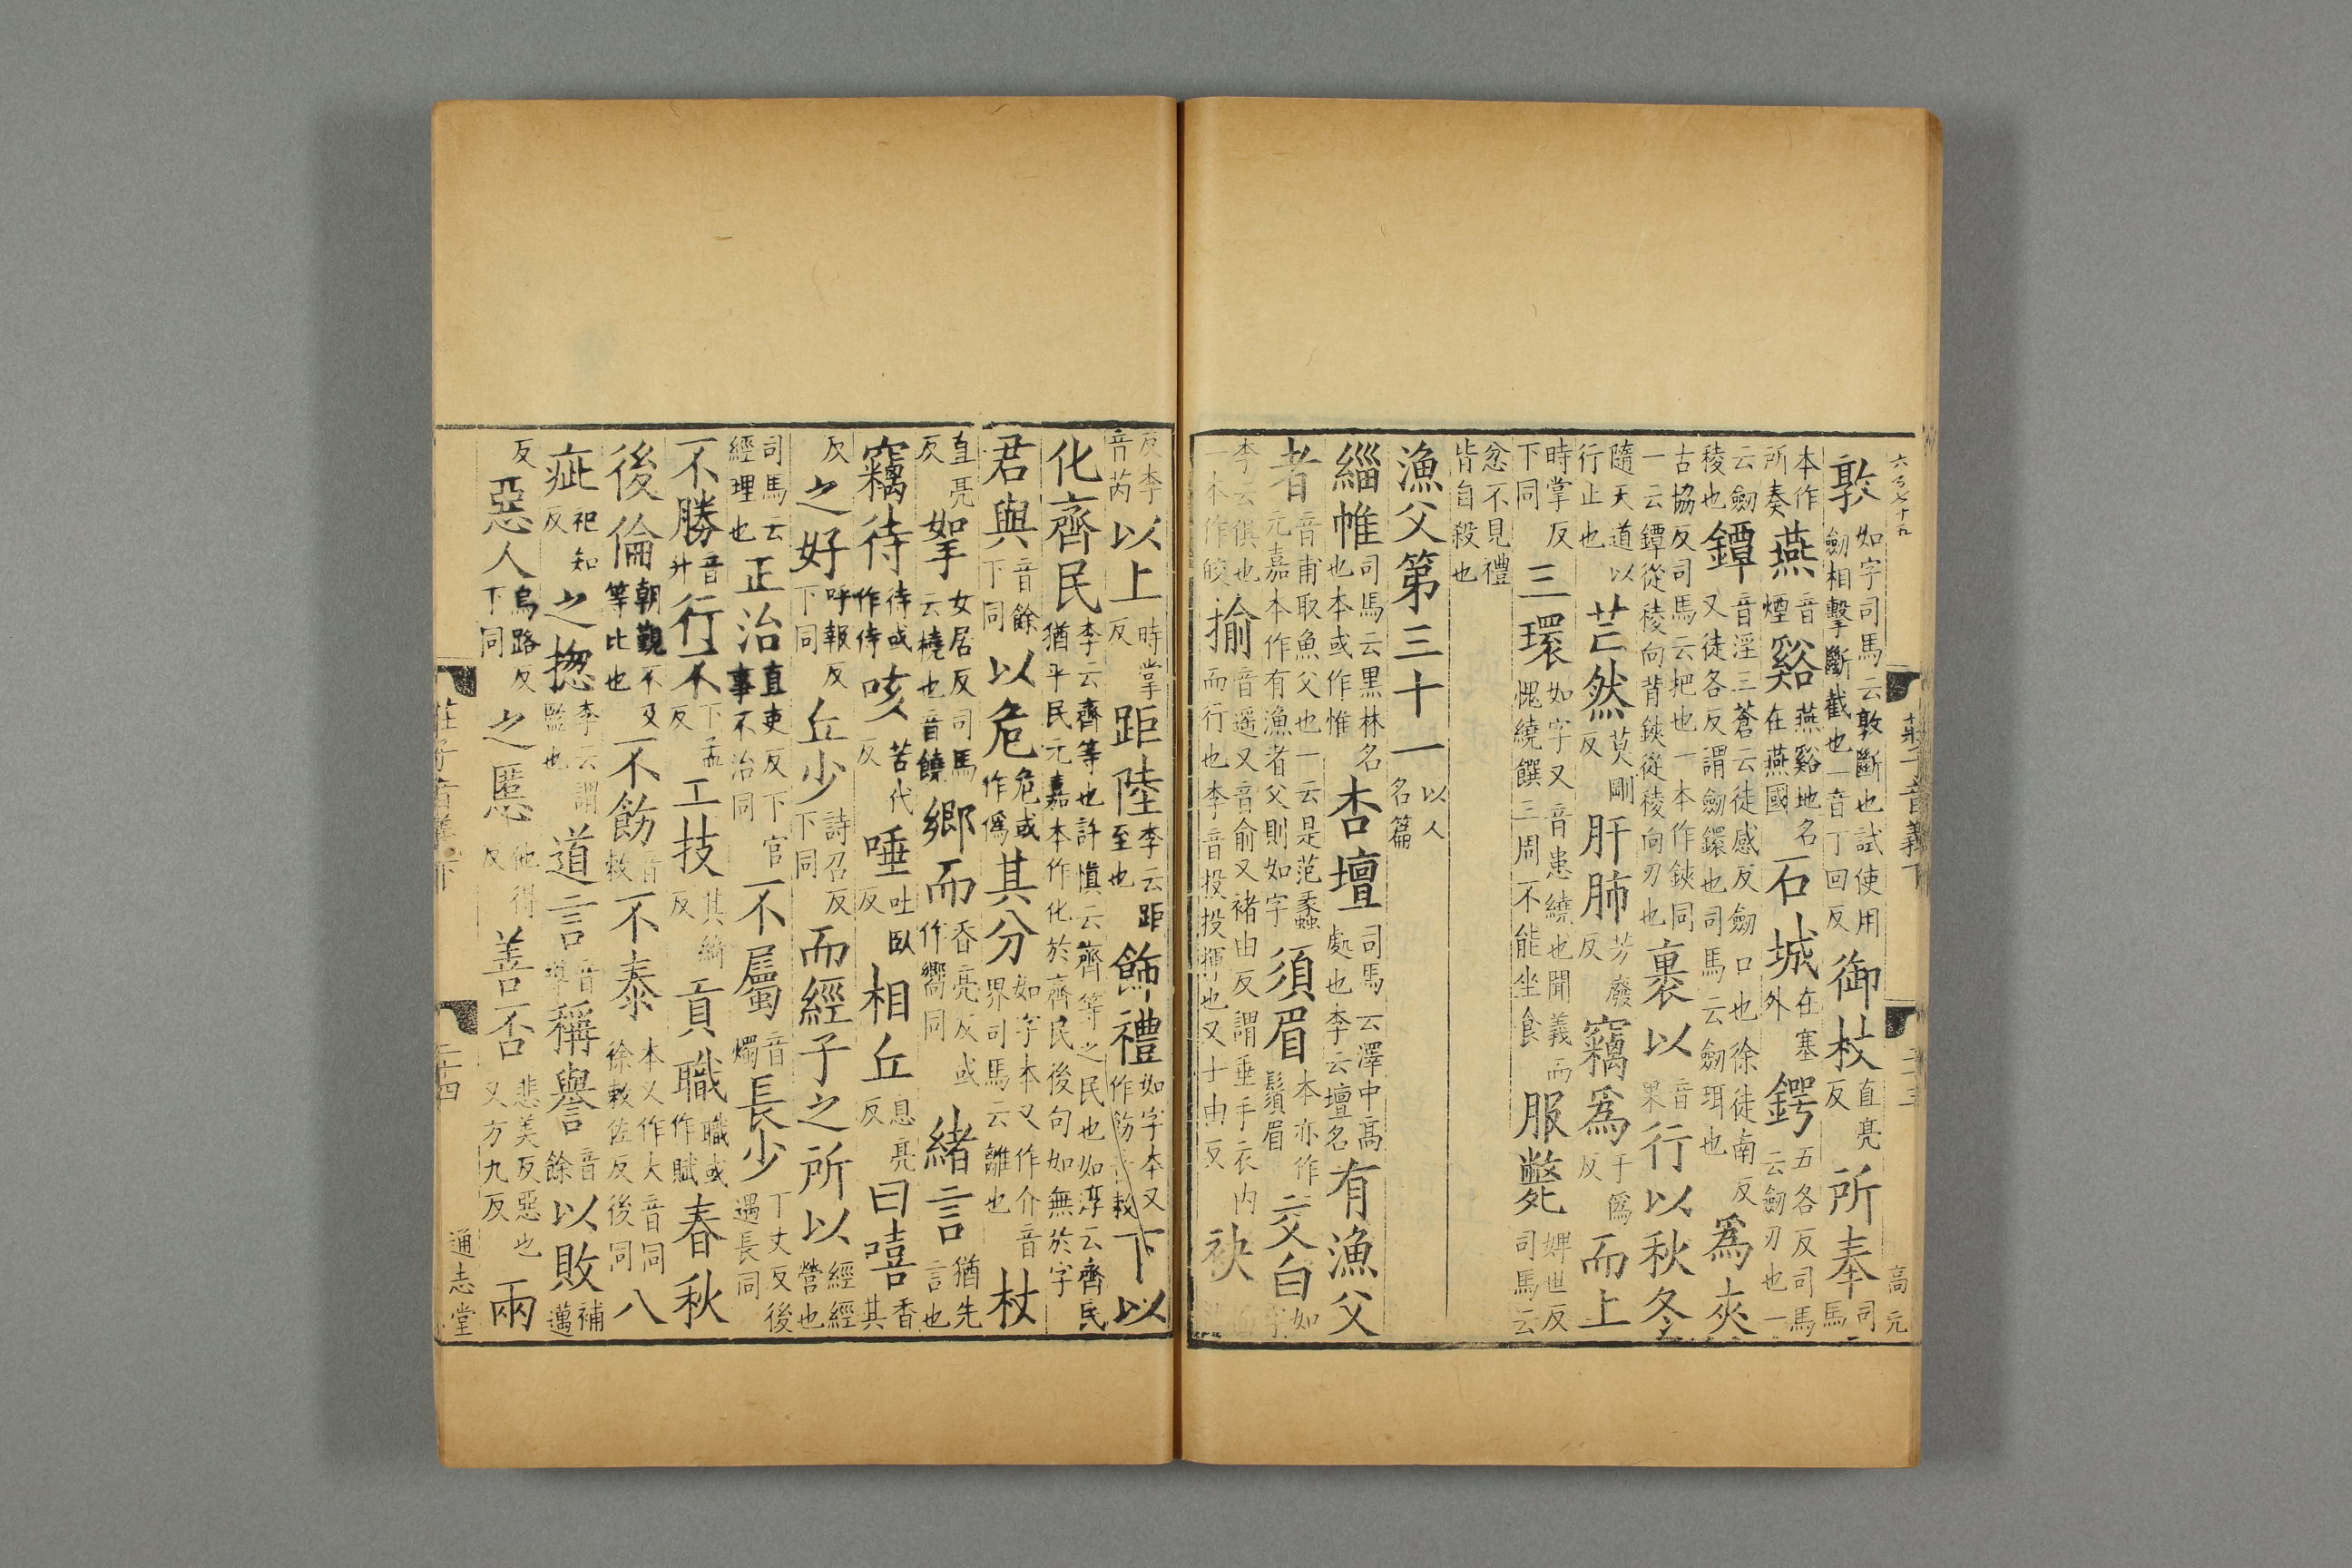 六百七十五 高元
敦如字司馬云敦斷也試使用劒相擊斷截也一音丁回反御杖直亮反所奉司馬
本作所奏燕音煙谿燕谿地名在燕國石城在塞外鍔五各反司馬云劒刃也一
云劒稜也鐔音淫三蒼云徒感反劒口也徐徒南反又徒各反謂劒鐶也司馬云劒珥也爲夾
古協反司馬云把也一本作鋏同一云鐔從稜向背鋏從稜向刃也裹以音果行以秋冬
隨天道以行止也芒然莫剛反肝肺芳廢反竊爲于僞反而上
時掌反下同三環如字又音患繞也聞義而愧繞饌三周不能坐食服斃婢世反司馬云
忿不見禮皆自殺也
漁父第三十一以人名篇
緇帷司馬云黑林名也本或作惟杏壇司馬云澤中高處也李云壇名有漁父
音甫取魚父也一云是范蠡元嘉本作有漁者父則如字須眉本亦作鬚眉交白如字
李云俱也一本作皎揄音遥又音俞又褚由反謂垂手衣内而行也李音投投揮也又士由反袂
莊子音義下 二十三
反李音芮以上時掌反距陸李云距至也飾禮如字本又作飭音敕下以
化齊民李云齊等也許愼云齊等之民也如淳云齊民猶平民元嘉本作化於齊民後句如無於字
君與音餘下同以危危或作僞其分如字本又作介音界司馬云離也杖
直亮反如挐女居反司馬云橈也音饒鄉而香亮反或作嚮同緒言猶先言也
竊待待或作侍咳苦代反唾吐臥反相丘息亮反曰嘻香其
反之好呼報反下同丘少詩召反下同而經子之所以經經營也
司馬云經理也正治直吏反下官事不治同不屬音燭長少丁丈反後遇長同
不勝音升行不下孟反工技其綺反貢職職或作賦春秋
後倫朝覲不及等比也不飭音敕不泰本又作大音同徐敕佐反後同八
疵祀知反之揔李云謂監也道言音導稱譽音餘以敗補邁
反惡人烏路反下同之慝他得反善否悲美反惡也又方九反兩
莊子音義下 二十四 通志堂